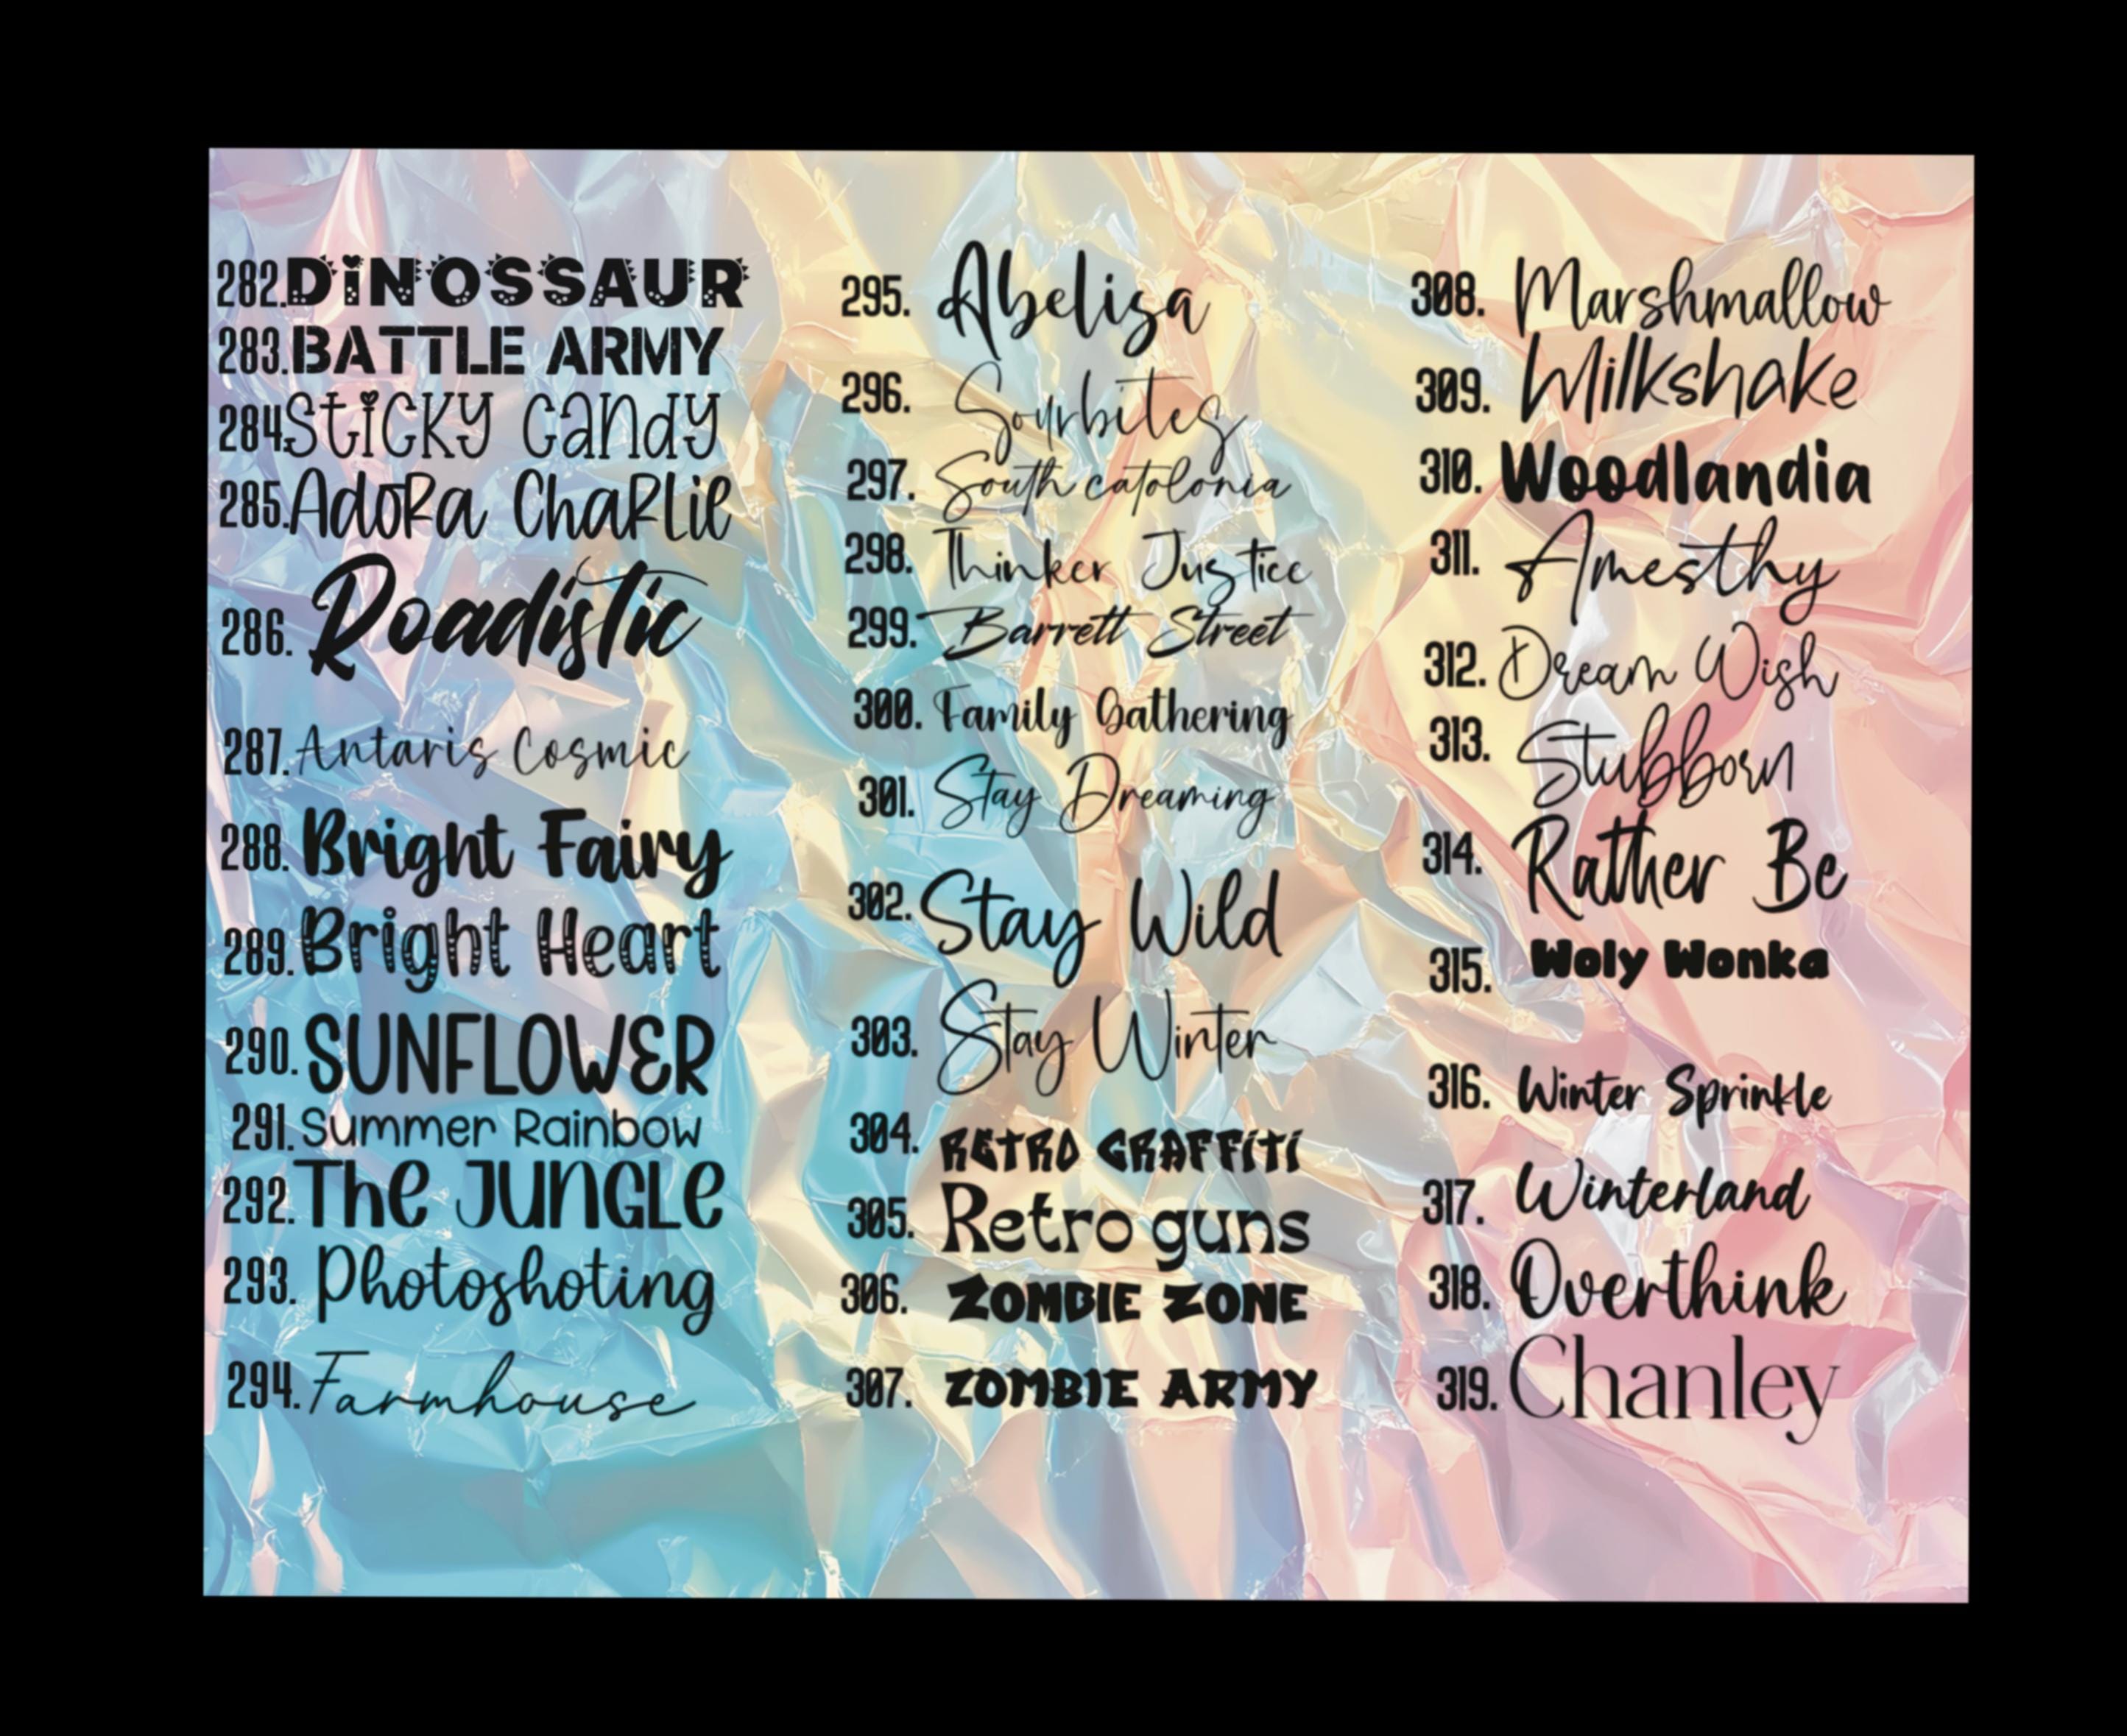 282. DiNOSSAUR
283. BATTLE ARMY
284. Sticky Candy
285. Adora Charlie
286. Roadistic
287. Antaris Cosmic
288. Bright Fairy
289. Bright Heart
290. SUNFLOWER
291. Summer Rainbow
292. The JUNGLE
293. Photoshoting
294. Farmhouse
295. Abelisa
296. Sourbites
297. South catolonia
298. Thinker Justice
299. Barrett Street
300. Family Gathering
301. Stay Dreaming
302. Stay Wild
303. Stay Winter
304. RETRO GRAFFITI
305. Retro guns
306. ZOMBIE ZONE
307. ZOMBIE ARMY
308. Marshmallow
309. Milkshake
310. Woodlandia
311. Amesthy
312. Dream Wish
313. Stubborn
314. Rather Be
315. Woly Wonka
316. Winter Sprinkle
317. Winterland
318. Overthink
319. Chanley